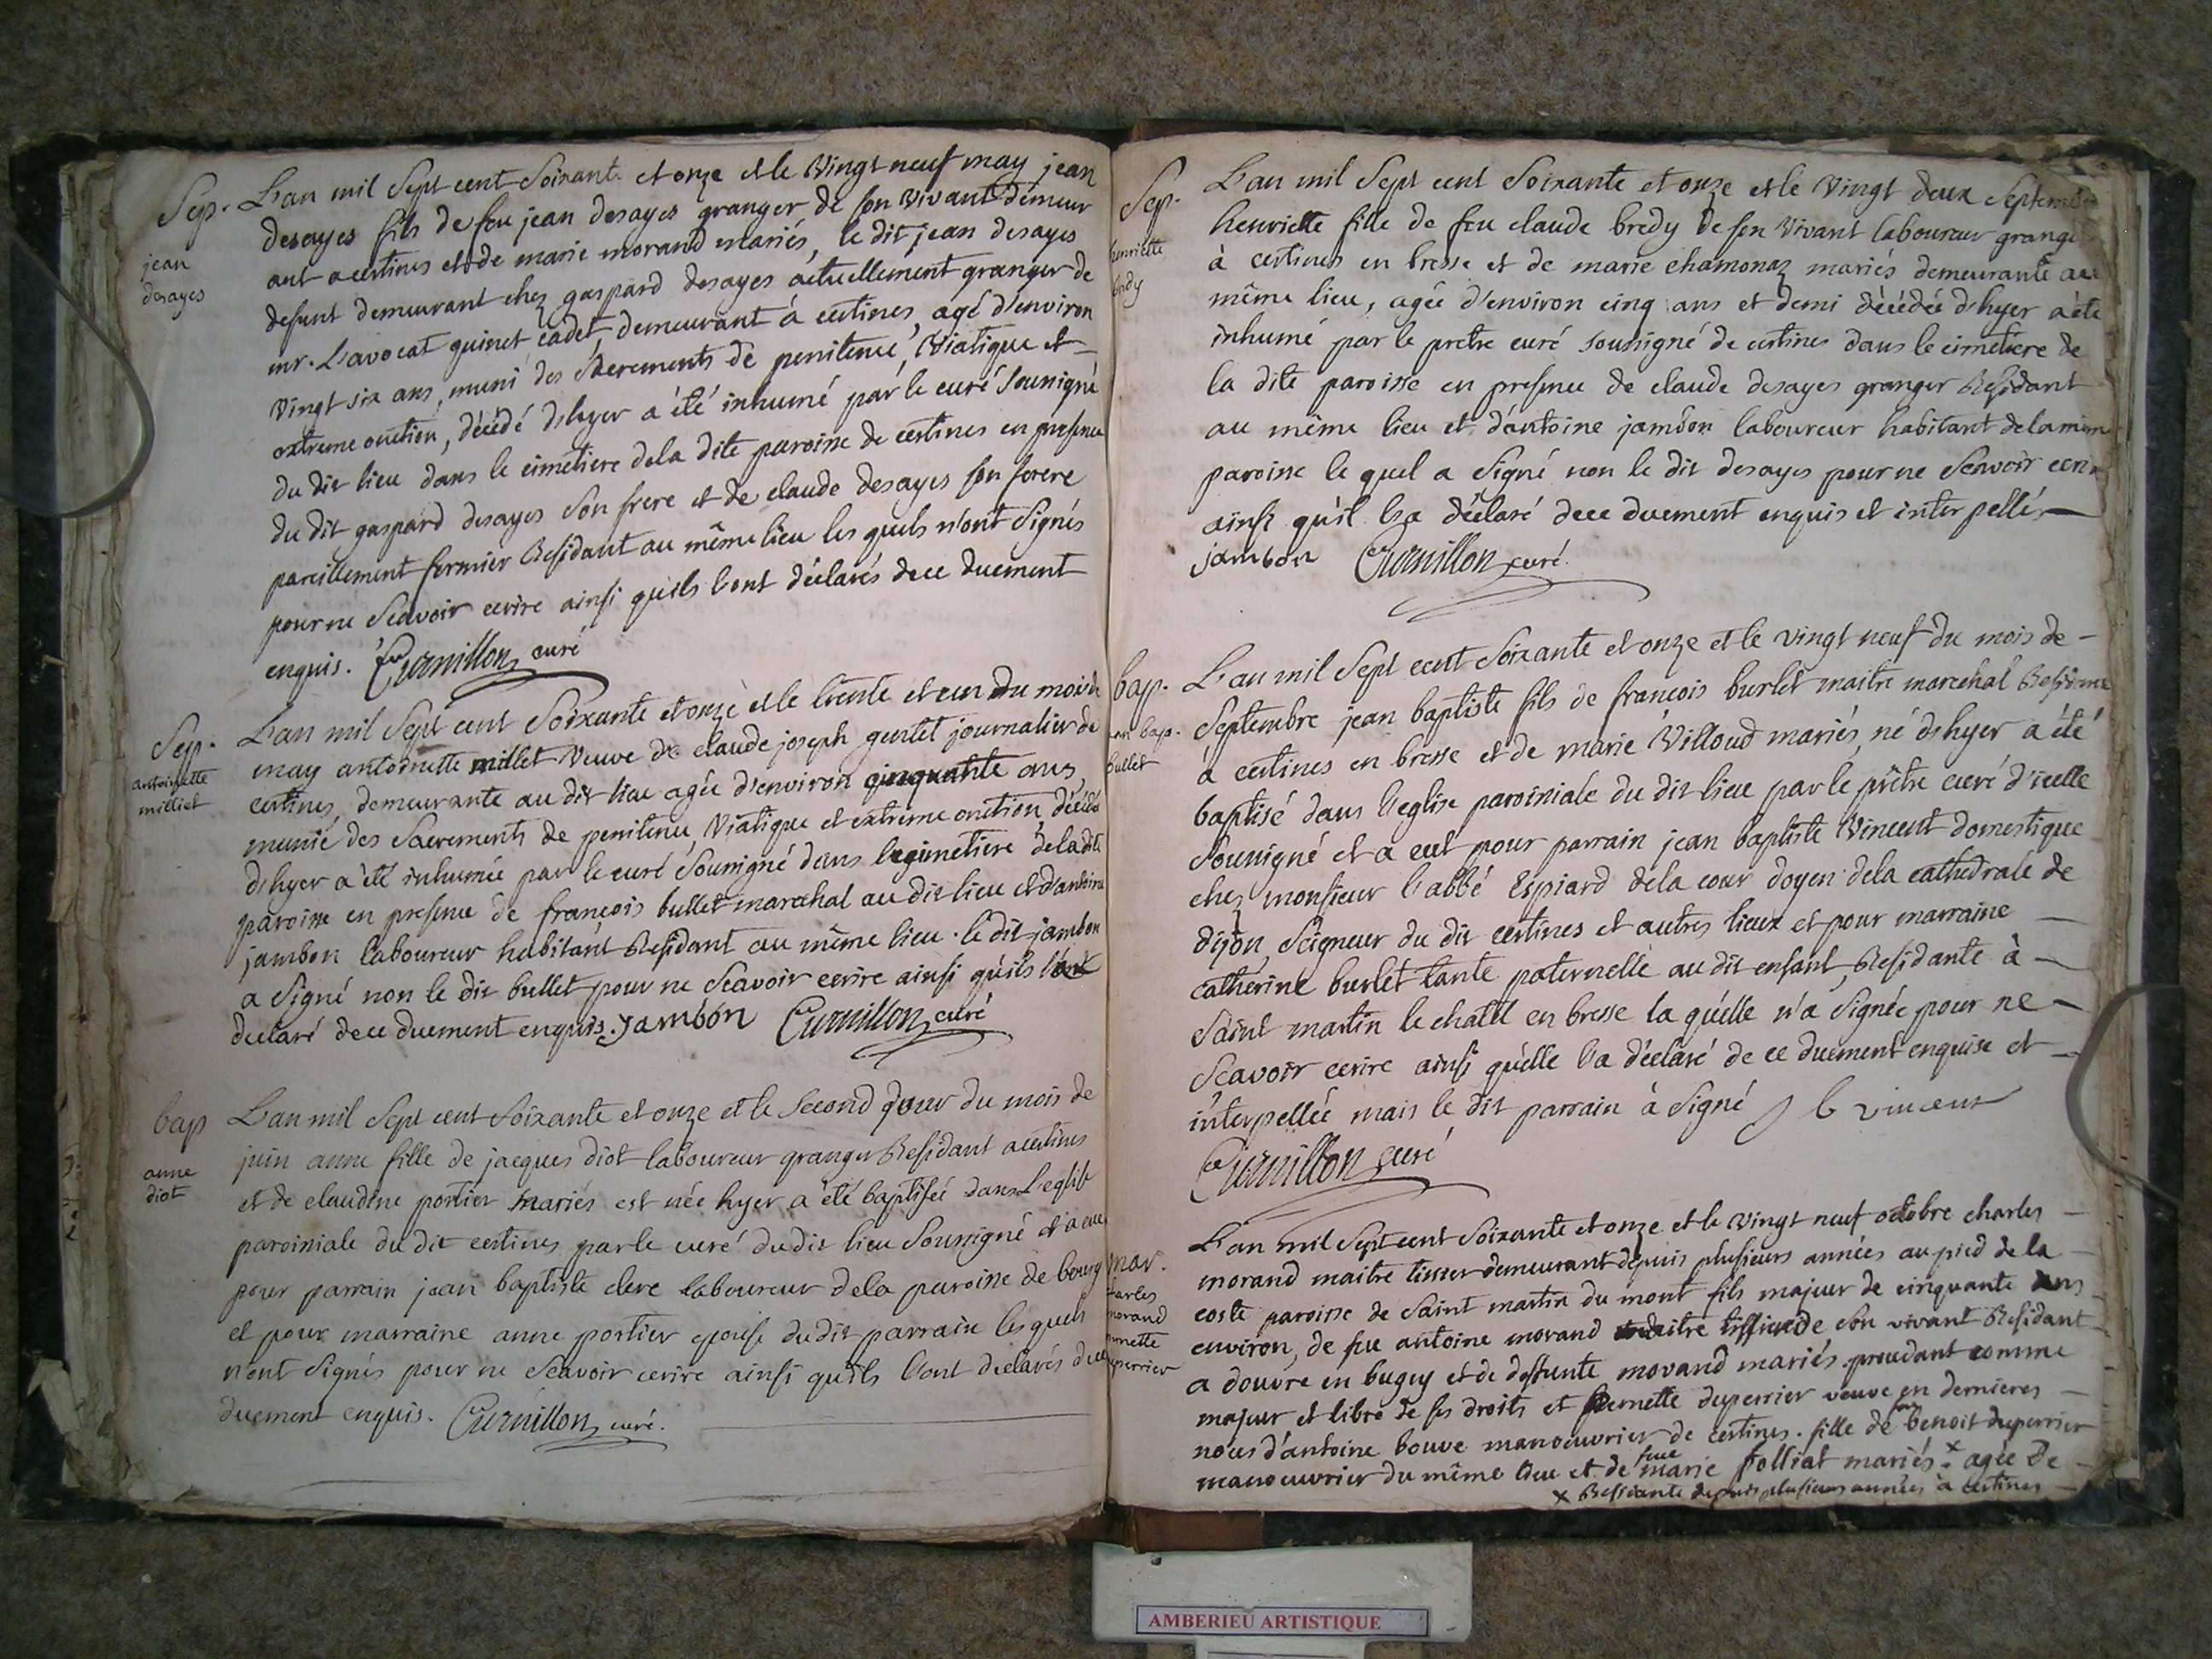 Sep.
jean
desayes
L'an mil Sept cent Soixante et onze et le Vingt neuf may jean
desayes fils de feu jean desayes granger de son Vivant demeur
ant a certines et de marie morand mariés, le dit jean desayes
defunt demeurant chez gaspard desayes actuellement granger de
mr. L'avocat guinet cadet, demeurant à certines, agé d'environ
Vingt six ans, muni des Sacrements de penitence, Viatique et
extreme onction, décédé d'hyer a été inhumé par le curé Sousigné
du dit lieu dans le cimetiere dela dite paroisse de certines en presence
du dit gaspard desayes Son frere et de claude desayes son frere
pareillement fermier Residant au même lieu les quels n'ont Signés
pour ne Scavoir ecrire ainsi quils l'ont déclarés dece duement
enquis. Curnillon curé
Sep.
antoinette
milliet
L'an mil Sept cent Soixante et onze et le trente et un du mois de
may antoinette millet Veuve de claude joseph gentet journalier de
certines, demeurante au dit lieu agée d'environ cinquante ans,
munie des Sacrements de penitence, Viatique et extreme onction, décédée
d'hyer a été inhumée par le curé Sousigné dans le cimetiere dela dite
paroisse en presence de francois bullet marechal au dit lieu et d'antoine
jambon laboureur habitant Residant au même lieu. le dit jambon
a Signé non le dit bullet pour ne Scavoir ecrire ainsi qu'ils l'ont
declaré dece duement enquis. jambon Curnillon curé
bap
anne
diot
L'an mil Sept cent Soixante et onze et le Second jour du mois de
juin anne fille de jacques diot laboureur granger Residant a certines
et de claudine portier mariés est née hyer a été baptisée dans L'eglise
paroissiale du dit certines par le curé du dit lieu Sousigné et a eu
pour parrain jean baptiste clere laboureur dela paroisse de bourg
et pour marraine anne portier epouse du dit parrain les quels
n'ont Signés pour ne Scavoir ecrire ainsi quils l'ont declarés dece
duement enquis. Curnillon curé.
Sep.
henriette
bredy
L'an mil Sept cent Soixante et onze et le Vingt deux Septembre
henriette fille de feu claude bredy de son Vivant laboureur granger
à certines en bresse et de marie chamonaz mariés demeurante au
même lieu, agée d'environ cinq ans et demi décédée d'hyer a été
inhumé par le pretre curé sousigné de certines dans le cimetiere de
la dite paroisse en presence de claude desayes granger Residant
au même lieu et d'antoine jambon laboureur habitant dela même
paroisse le quel a Signé non le dit desayes pour ne Scavoir ecrire
ainsi qu'il l'a déclaré dece duement enquis et interpellé
jambon Curnillon curé.
bap.
jean bap.
bullet
L'an mil Sept cent Soixante et onze et le vingt neuf du mois de
Septembre jean baptiste fils de francois burlet maitre marechal Residant
à certines en bresse et de marie Villoud mariés, né d'hyer a été
baptisé dans l'eglise paroissiale du dit lieu par le prêtre curé d'icelle
Sousigné et a eut pour parrain jean baptiste Vincent domestique
chez monsieur l'abbé Espiard dela cour doyen dela cathedrale de
dijon, Seigneur du dit certines et autres lieux et pour marraine
catherine burlet tante paternelle au dit enfant, Residante à
Saint martin le chatel en bresse la quelle n'a Signée pour ne
Scavoir ecrire ainsi qu'elle l'a déclaré de ce duement enquise et
interpellée mais le dit parrain à Signé J b vincent
Curnillon curé
mar.
charles
morand
pernette
duperrier
L'an mil Sept cent Soixante et onze et le Vingt neuf octobre charles
morand maitre tissier demeurant depuis plusieurs années au pied de la
coste paroisse de Saint martin du mont fils majeur de cinquante ans
environ, de feu antoine morand maitre tissier de son vivant Residant
a douvre en bugey et de deffunte morand mariés. procedant comme
majeur et libre de ses droits et pernette duperrier veuve en dernieres
noces d'antoine bouve manoeuvrier de certines. fille de feu benoit duperrier
manoeuvrier du même lieu et de feue marie folliat mariés x agée de
x Residante depuis plusieurs années à certines
AMBERIEU ARTISTIQUE